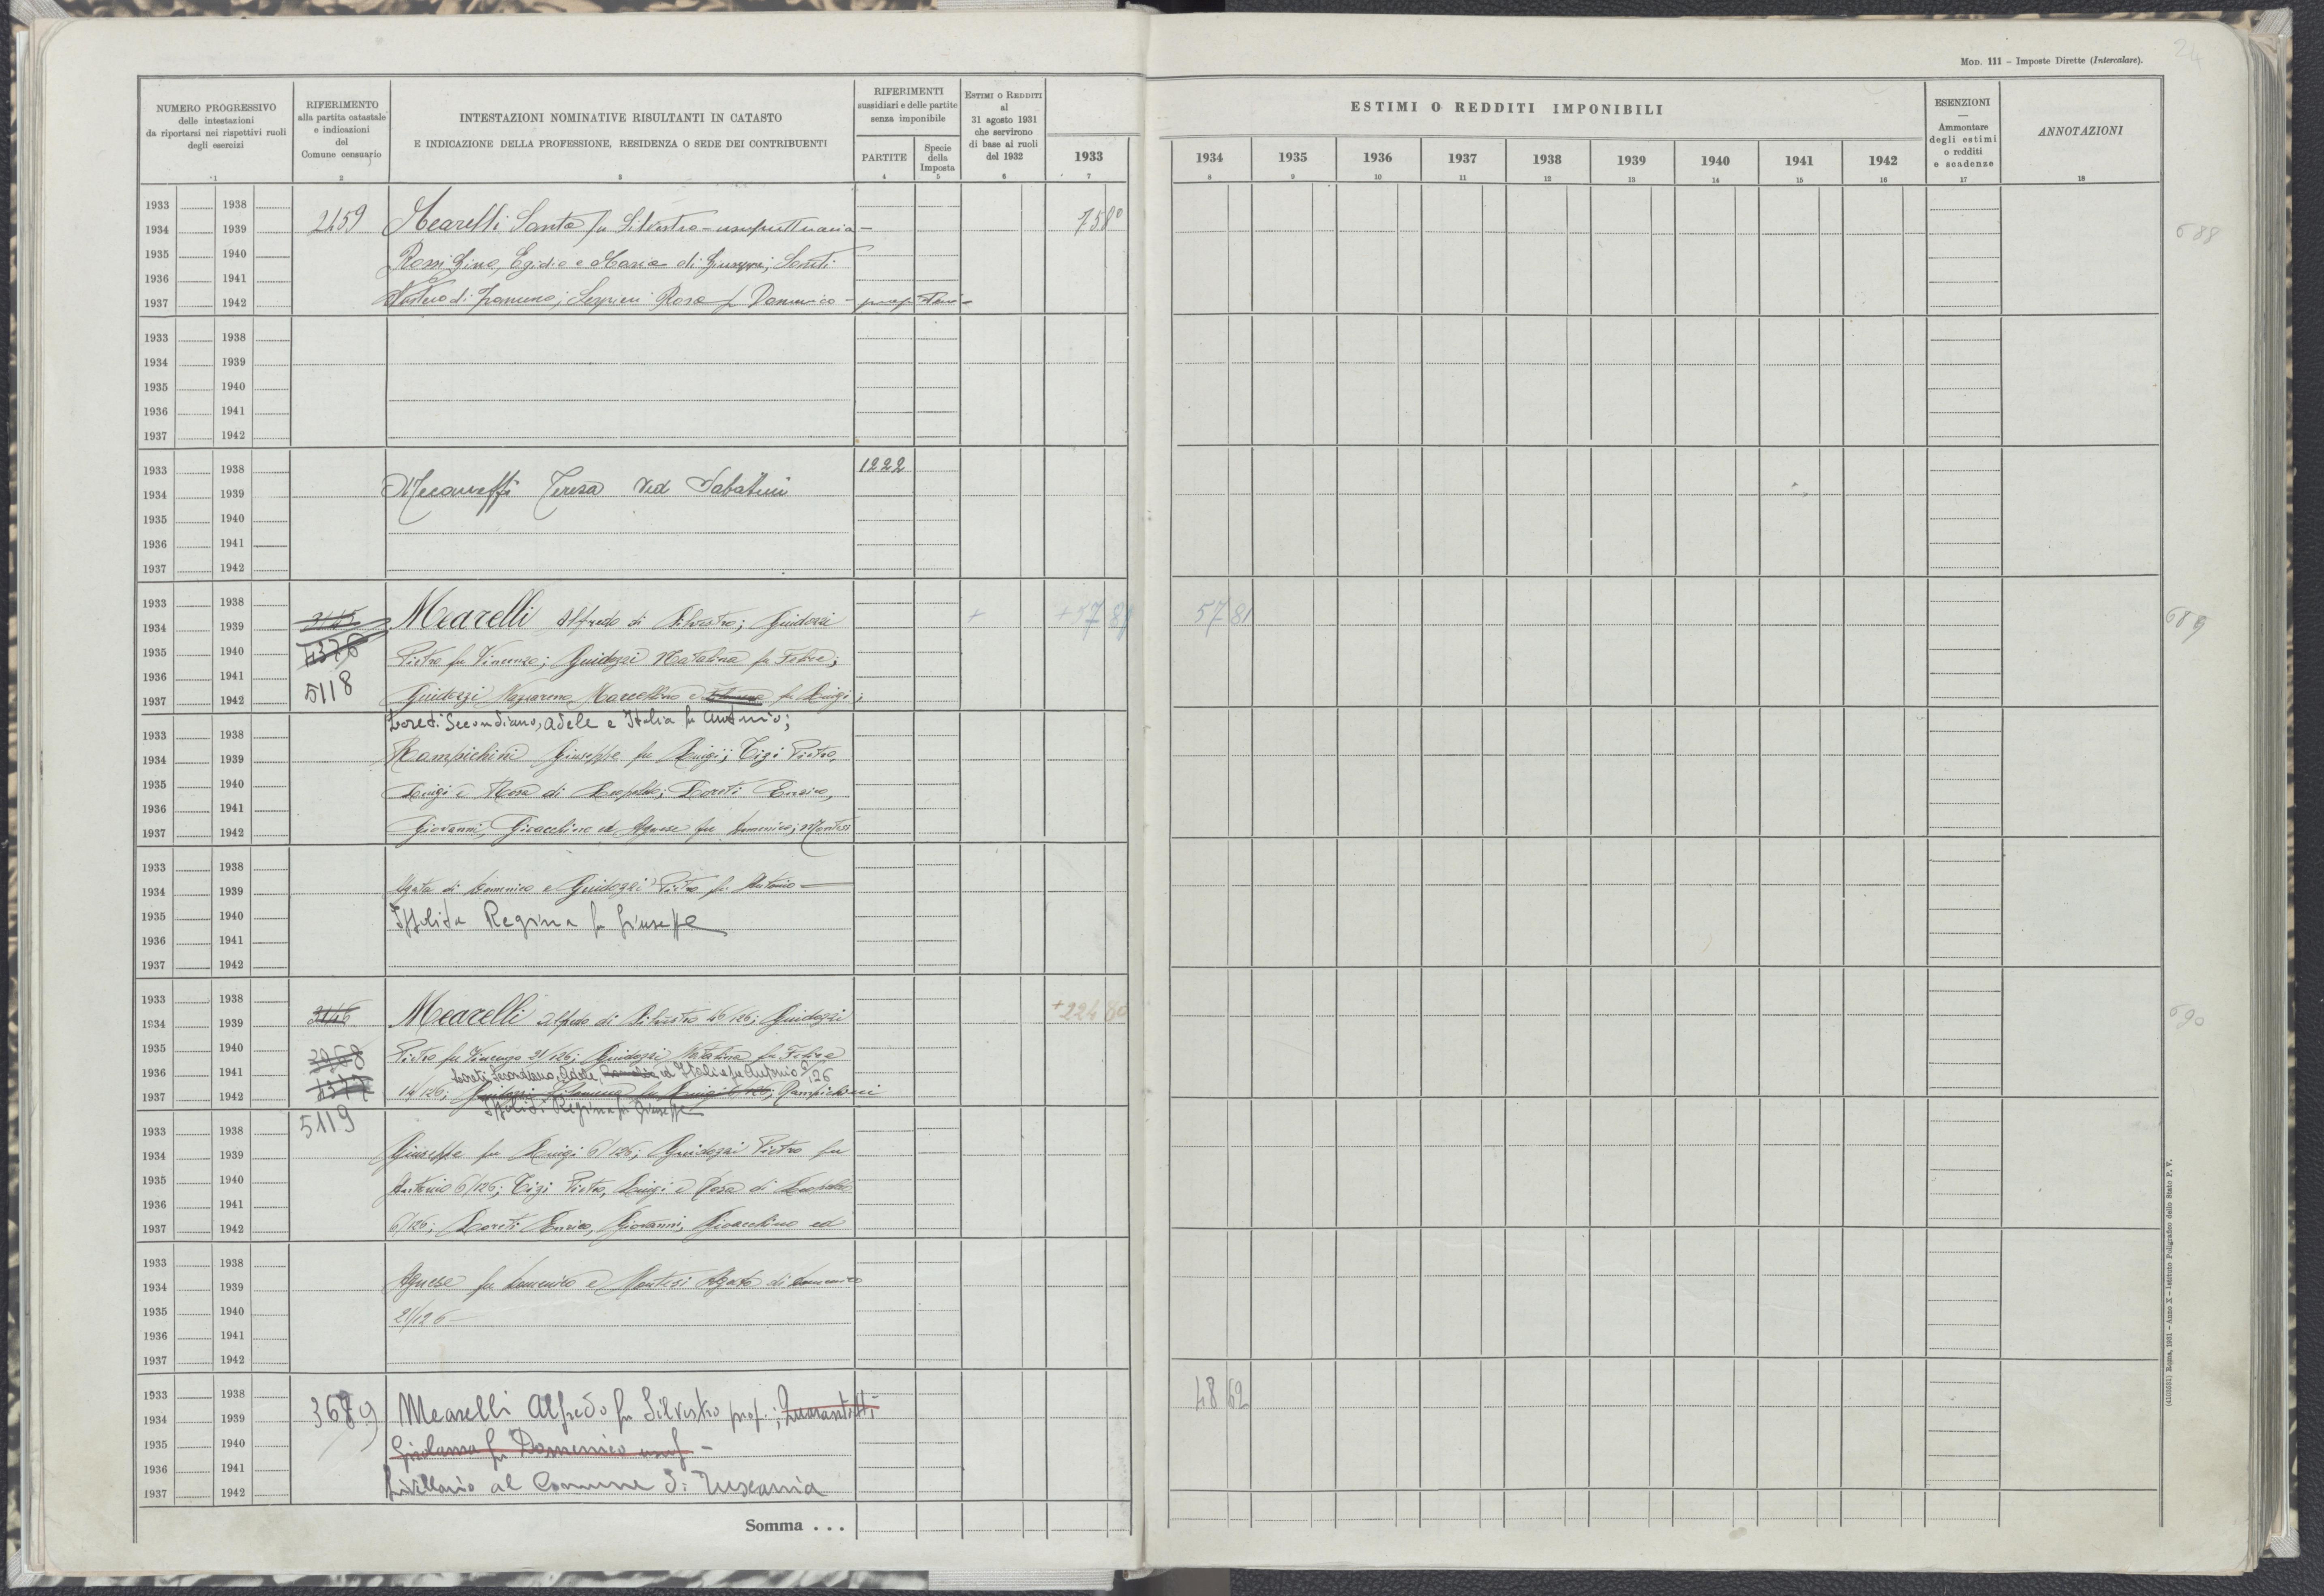 24
MOD. 111 – Imposte Dirette (Intercalare).
NUMERO PROGRESSIVO
delle intestazioni
da riportarsi nei rispettivi ruoli
degli esercizi
RIFERIMENTO
alla partita catastale
e indicazioni
del
Comune censuario
INTESTAZIONI NOMINATIVE RISULTANTI IN CATASTO
E INDICAZIONE DELLA PROFESSIONE, RESIDENZA O SEDE DEI CONTRIBUENTI
RIFERIMENTI
sussidiari e delle partite
senza imponibile
PARTITE
Specie
della
Imposta
ESTIMI O REDDITI
al
31 agosto 1931
che servirono
di base ai ruoli
del 1932
ESTIMI O REDDITI IMPONIBILI
1933 1934 1935 1936 1937 1938 1939 1940 1941 1942
ESENZIONI
—
Ammontare
degli estimi
o redditi
e scadenze
ANNOTAZIONI
1 2 3 4 5 6 7 8 9 10 11 12 13 14 15 16 17 18
1933 1938
1934 1939 2459 Mearelli Santa fu Silvestro - usufruttuaria - 7580 688
1935 1940 Rossi Gino, Egidio e Maria di Giuseppe; Loreti
1936 1941
1937 1942 di Rosa fu Domenico -
1933 1938
1934 1939
1935 1940
1936 1941
1937 1942
1933 1938 1222
1934 1939 Teresa Ved Sabatini
1935 1940
1936 1941
1937 1942
1933 1938
1934 1939 Mearelli Alfredo di Silvestro; Guidozzi + +57 81 57 81 689
1935 1940 4376 Pietro fu Vincenzo; Guidozzi Natalina fu Felice;
1936 1941 5118
1937 1942 Guidozzi Nazareno Marcellino e fu Luigi;
Loreti Secondiano, Adele e Italia fu Antonio;
1933 1938
1934 1939 Rampichini Giuseppe fu Luigi; Tizi Pietro,
1935 1940 Luigi e Rosa di Leopoldo; Loreti Enrico,
1936 1941
1937 1942 Giovanni, Gioacchino ed Agnese fu Domenico; Montesi
1933 1938
1934 1939 Agata di Domenico e Guidozzi Pietro fu Antonio —
1935 1940 Regina fu Giuseppe
1936 1941
1937 1942
1933 1938
1934 1939 Mearelli Alfredo di Silvestro 46/126; Guidozzi +224 80 690
1935 1940 Pietro fu Vincenzo 21/126; Guidozzi Natalina fu Felice
1936 1941 Loreti Secondiano, Adele, ed Italia fu Antonio /126
1937 1942 14/126; fu Luigi 6/126; Rampichini
Regina fu Giuseppe
1933 1938 5119
1934 1939 Giuseppe fu Luigi 6/126; Guidozzi Pietro fu
1935 1940 Antonio 6/126; Tizi Pietro, Luigi e Rosa di Leopoldo
1936 1941
1937 1942 6/126; Loreti Enrico, Giovanni, Gioacchino ed
1933 1938
1934 1939 Agnese fu Domenico e Montesi Agata di Domenico
1935 1940 21/126 —
1936 1941
1937 1942
1933 1938 48 62
1934 1939 3689 Mearelli Alfredo fu Silvestro prop.; Quarantotti
1935 1940 Girolama fu Domenico usuf -
1936 1941
1937 1942 Livellario al Comune di Tuscania
Somma . . .
(4103531) Roma, 1931 – Anno X – Istituto Poligrafico dello Stato P. V.